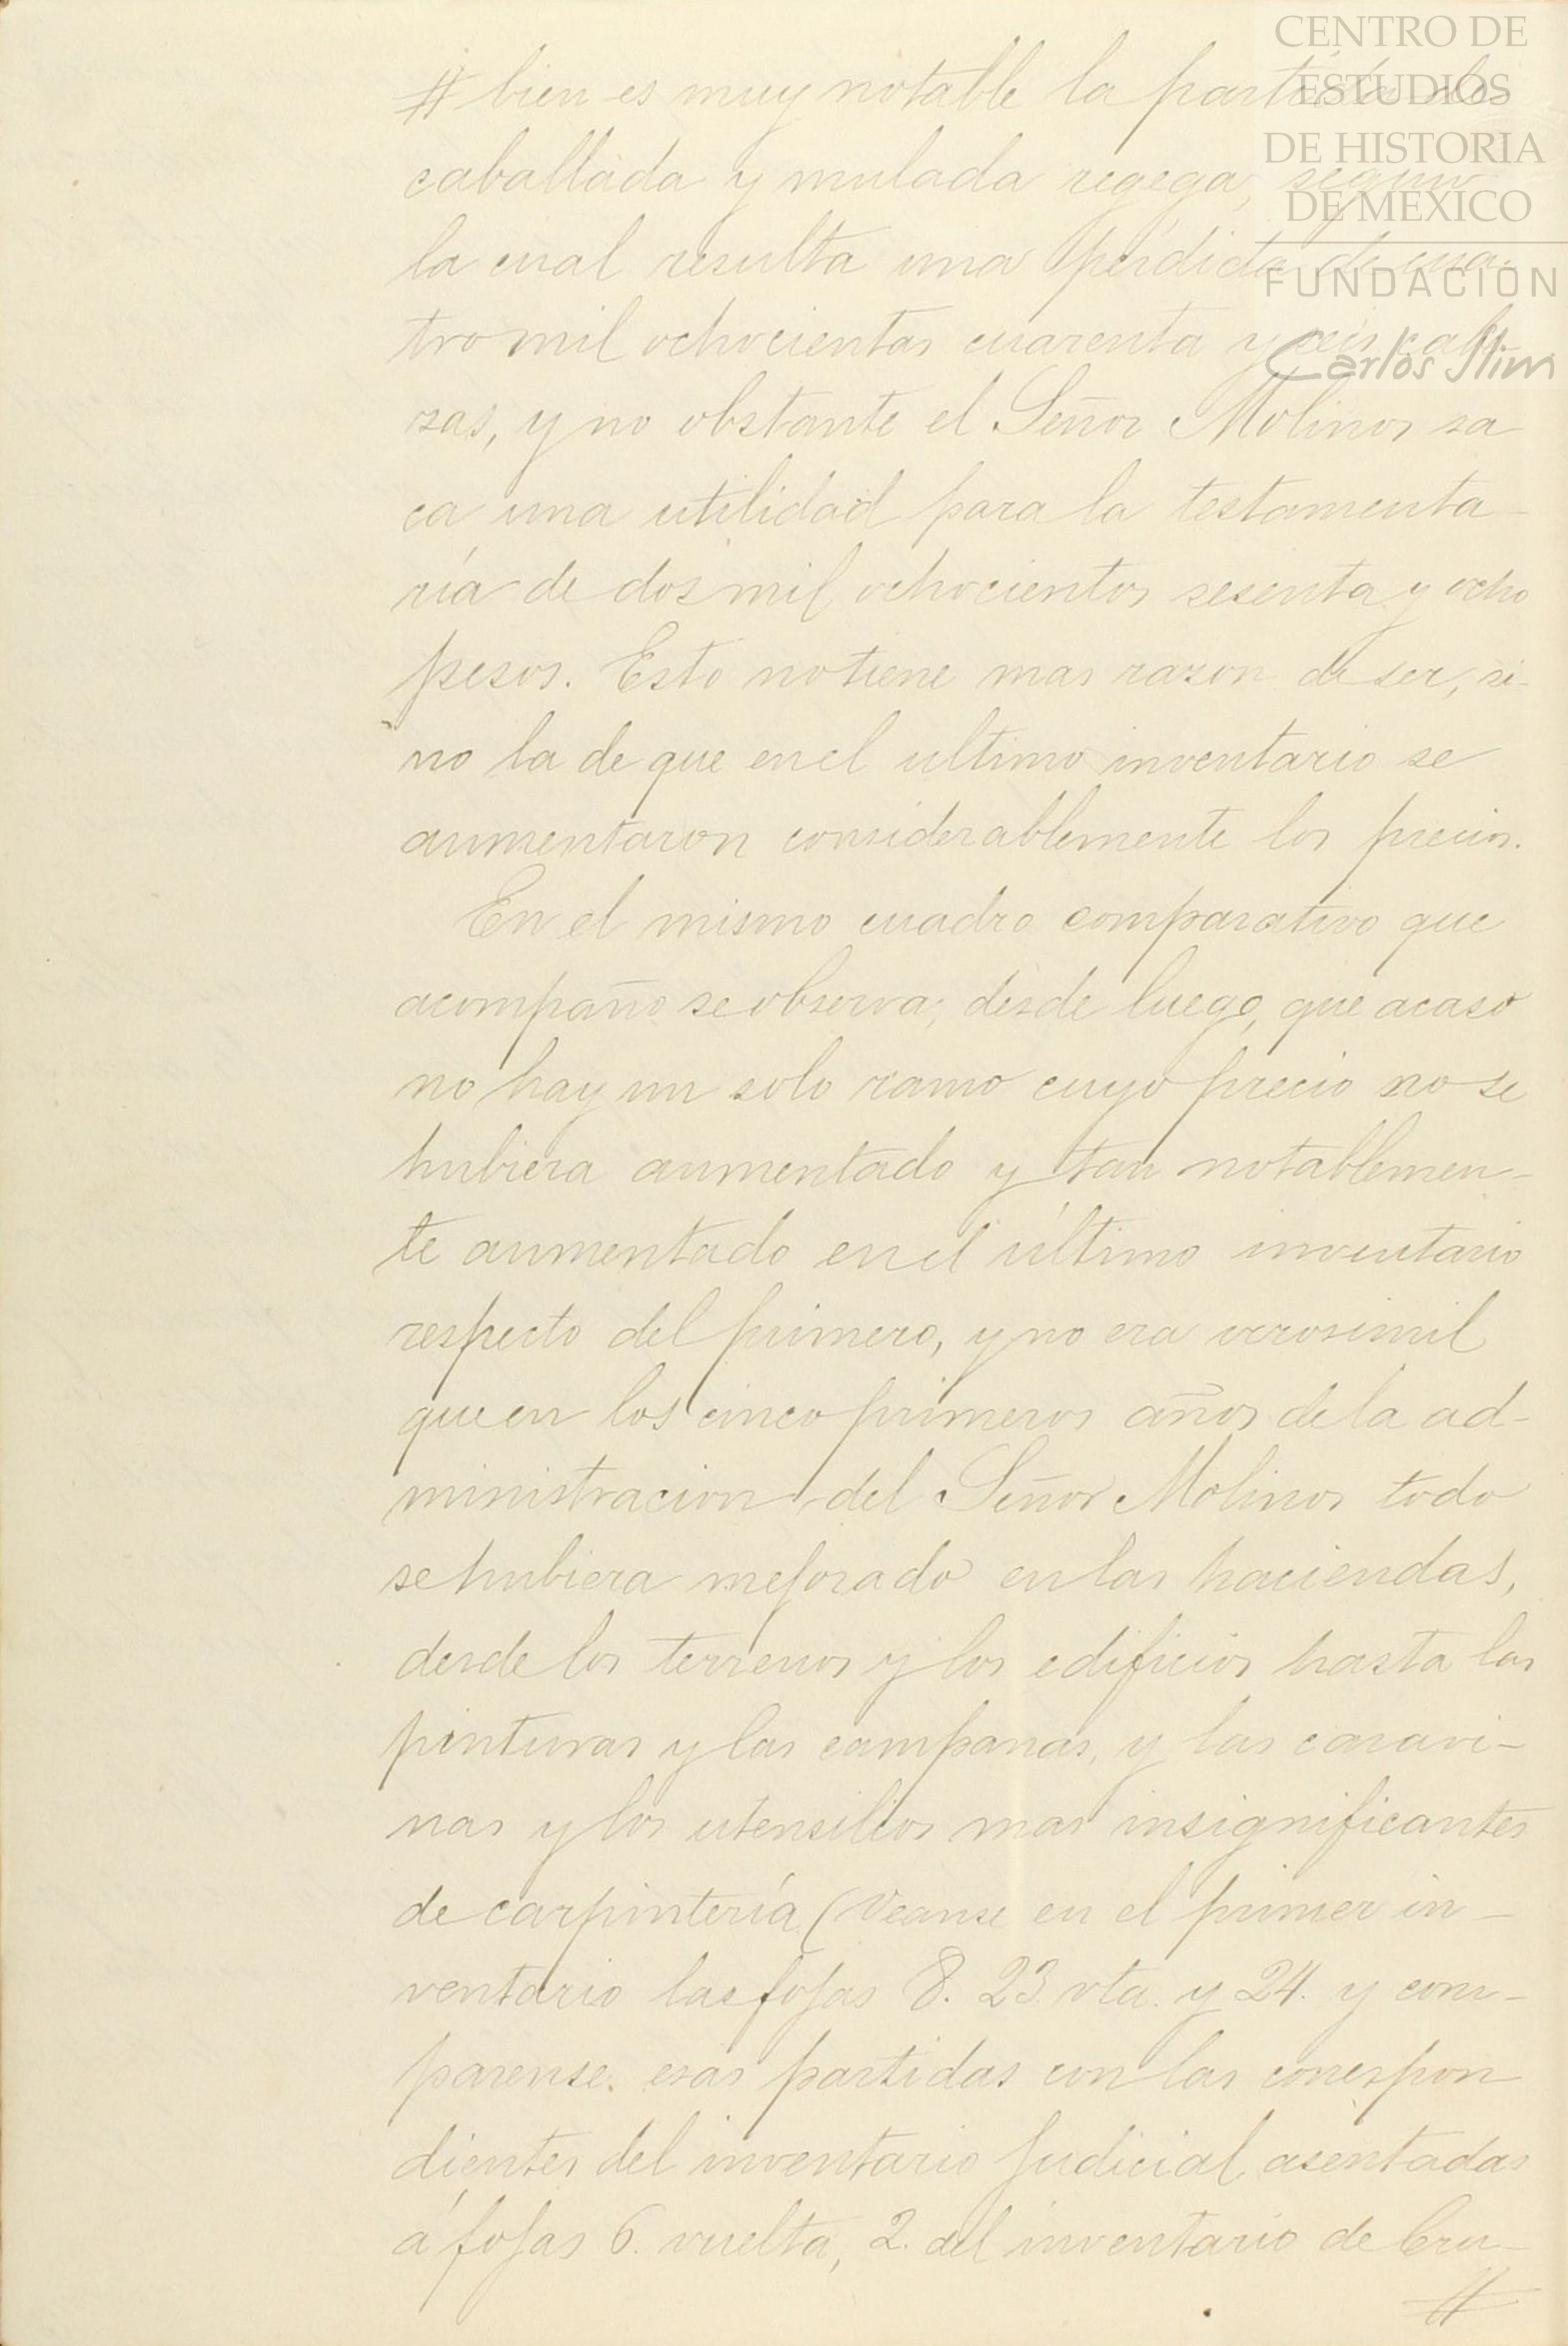 CENTRO DE
ESTUDIOS
DE HISTORIA
DE MEXICO
FUNDACIÓN
Carlos Slim
# bien es muy notable la partida de
caballada y mulada regega, segun
la cual resulta una pérdida de cua-
tro mil ochocientas cuarenta y seis cabe
zas, y no obstante el Señor Molinos sa
ca una utilidad para la testamenta-
ría de dos mil ochocientos sesenta y ocho
pesos. Esto no tiene mas razon de ser, si-
no la de que en el ultimo inventario se
aumentaron considerablemente los precios.
En el mismo cuadro comparativo que
acompaño se observa, desde luego, que acaso
no hay un solo ramo cuyo precio no se
hubiera aumentado y tan notablemen-
te aumentado en el último inventario
respecto del primero, y no era verosimil
que en los cinco primeros años de la ad-
ministracion del Señor Molinos todo
se hubiera mejorado en las haciendas,
desde los terrenos y los edificios hasta las
pinturas y las campanas, y las caravi-
nas y los utensilios mas insignificantes
de carpintería (Veanse en el primer in-
ventario las fojas 8. 23 vta. y 24. y com-
parense esas partidas con las correspon
dientes del inventario judicial asentadas
á fojas 6. vuelta, 2. del inventario de Cru-
#